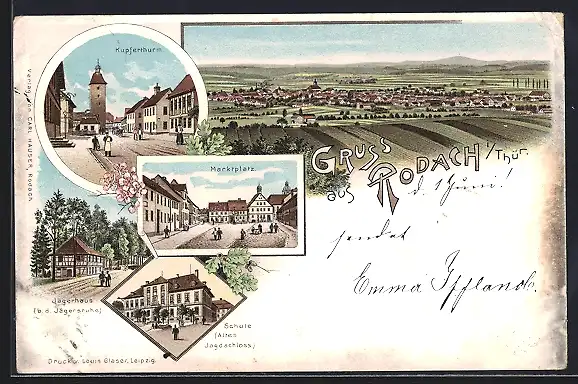 Kupferthurm
Verlag von CARL HAUSER, Rodach.
GRUSS
aus RODACH i/Thür.
Marktplatz.
d. 1 Juni!
sendet
Emma Iffland.
Jägerhaus
(b. d. Jägersruhe)
Schule
(Altes
Jagdschloss)
Druck v. Louis Glaser, Leipzig.